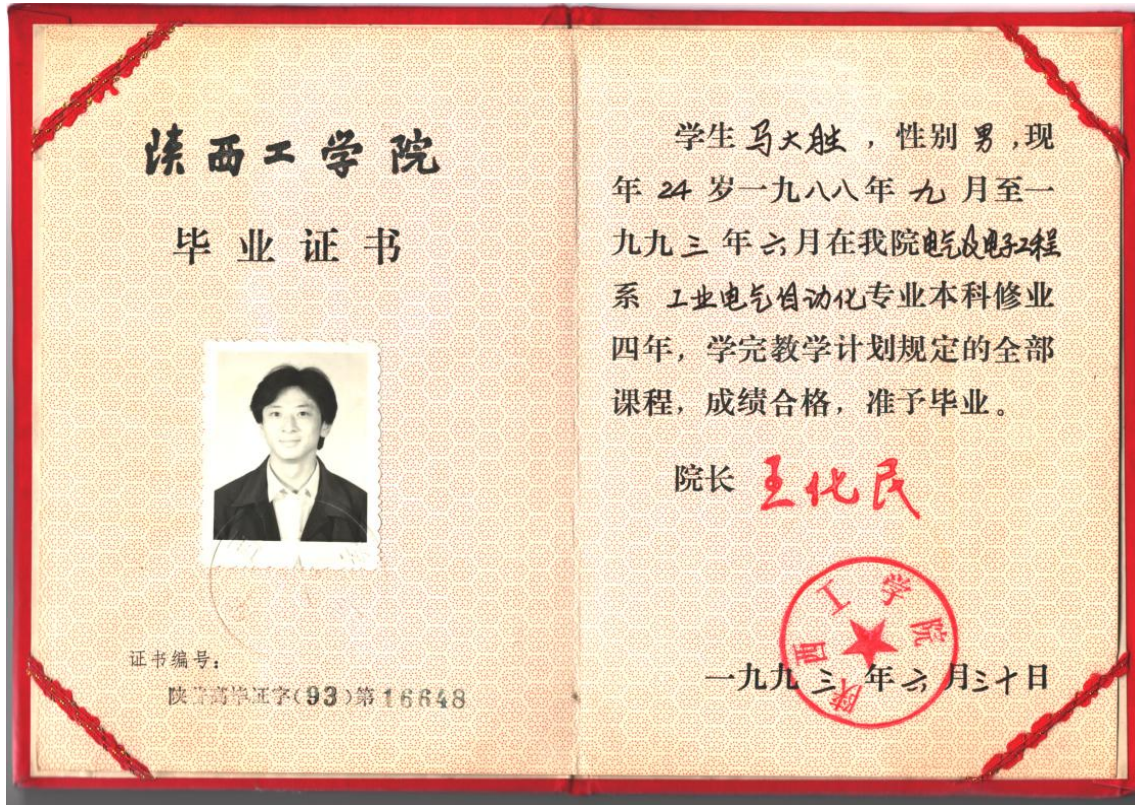 陕西工学院
毕业证书
证书编号：
陕普高毕证字(93)第16648
学生 马大胜 ，性别 男 ，现
年 24 岁一九八八年 九 月至一
九九 三 年 六 月在我院电气及电子工程
系 工业电气自动化专业本科修业
四年，学完教学计划规定的全部
课程，成绩合格，准予毕业。
院长 王化民
陕西工学院
一九九 三 年 六 月三十日